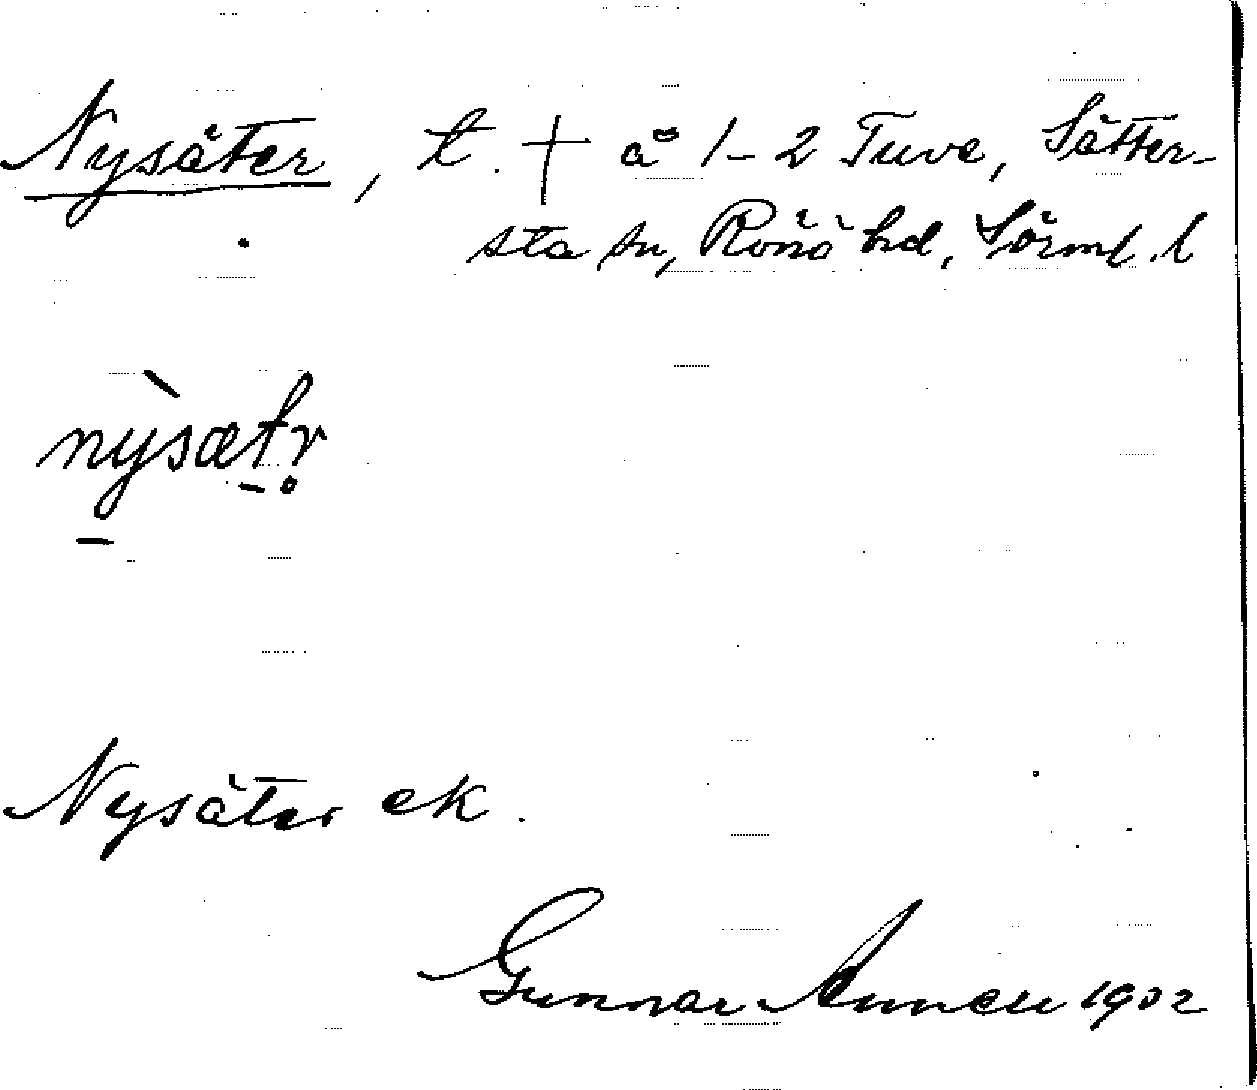 Nysäter, t. + å 1–2 Tuve, Sätter-
sta sn, Rönö hd, Sörml. l
nỳsætr̥
Nysäter ek.
Gunnar 1902